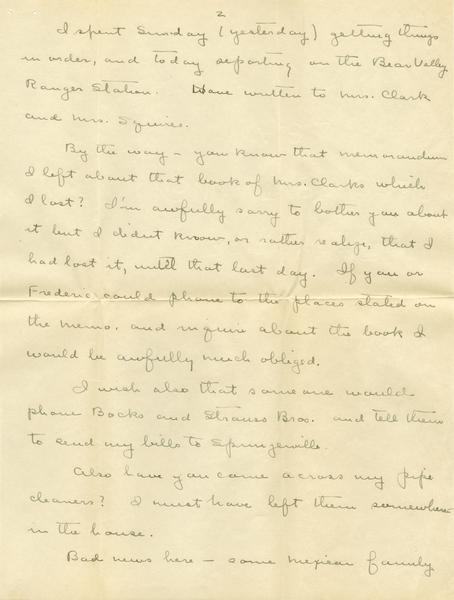 2
I spent Sunday (yesterday) getting things
in order, and today reporting on the Bear Valley
Ranger Station. Have written to Mrs. Clark
and Mrs. Squires.
By the way - you know that memorandum
I left about that book of Mrs. Clarks which
I lost? I'm awfully sorry to bother you about
it but I didn't know, or rather realize, that I
had lost it, until that last day. If you or
Frederic could phone to the places stated on
the memo. and inquire about the book I
would be awfully much obliged.
I wish also that someone would
phone Bocks and Strauss Bros. and tell them
to send my bills to Springerville.
Also have you come across my pipe
cleaners? I must have left them somewhere
in the house.
Bad news here - some Mexican family